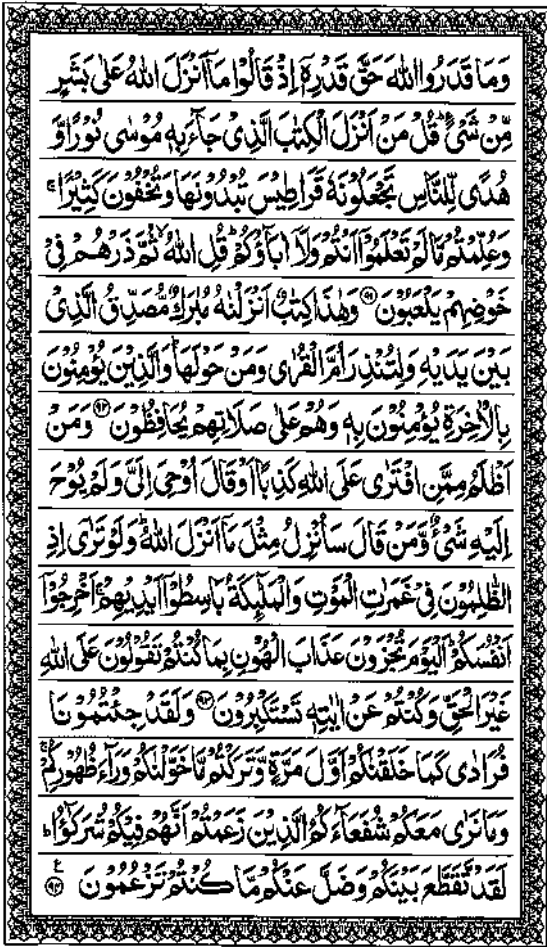 وَمَا قَدَرُوا اللّٰهَ حَقَّ قَدْرِهٖۤ اِذْ قَالُوْا مَاۤ اَنْزَلَ اللّٰهُ عَلٰى بَشَرٍ
مِّنْ شَىْءٍ ؕ قُلْ مَنْ اَنْزَلَ الْكِتٰبَ الَّذِىْ جَآءَ بِهٖ مُوْسٰى نُوْرًا وَّ
هُدًى لِّلنَّاسِ تَجْعَلُوْنَهٗ قَرَاطِيْسَ تُبْدُوْنَهَا وَتُخْفُوْنَ كَثِيْرًا ۚ
وَعُلِّمْتُمْ مَّا لَمْ تَعْلَمُوْۤا اَنْتُمْ وَلَاۤ اٰبَآؤُكُمْ ؕ قُلِ اللّٰهُ ۙ ثُمَّ ذَرْهُمْ فِىْ
خَوْضِهِمْ يَلْعَبُوْنَ ﴿۹۱﴾ وَهٰذَا كِتٰبٌ اَنْزَلْنٰهُ مُبٰرَكٌ مُّصَدِّقُ الَّذِىْ
بَيْنَ يَدَيْهِ وَلِتُنْذِرَ اُمَّ الْقُرٰى وَمَنْ حَوْلَهَا ؕ وَالَّذِيْنَ يُؤْمِنُوْنَ
بِالْاٰخِرَةِ يُؤْمِنُوْنَ بِهٖ وَهُمْ عَلٰى صَلَاتِهِمْ يُحَافِظُوْنَ ﴿۹۲﴾ وَمَنْ
اَظْلَمُ مِمَّنِ افْتَرٰى عَلَى اللّٰهِ كَذِبًا اَوْ قَالَ اُوْحِىَ اِلَىَّ وَلَمْ يُوْحَ
اِلَيْهِ شَىْءٌ وَّمَنْ قَالَ سَاُنْزِلُ مِثْلَ مَاۤ اَنْزَلَ اللّٰهُ ؕ وَلَوْ تَرٰۤى اِذِ
الظّٰلِمُوْنَ فِىْ غَمَرٰتِ الْمَوْتِ وَالْمَلٰٓئِكَةُ بَاسِطُوْۤا اَيْدِيْهِمْ ۚ اَخْرِجُوْۤا
اَنْفُسَكُمْ ؕ اَلْيَوْمَ تُجْزَوْنَ عَذَابَ الْهُوْنِ بِمَا كُنْتُمْ تَقُوْلُوْنَ عَلَى اللّٰهِ
غَيْرَ الْحَقِّ وَكُنْتُمْ عَنْ اٰيٰتِهٖ تَسْتَكْبِرُوْنَ ﴿۹۳﴾ وَلَقَدْ جِئْتُمُوْنَا
فُرَادٰى كَمَا خَلَقْنٰكُمْ اَوَّلَ مَرَّةٍ وَّتَرَكْتُمْ مَّا خَوَّلْنٰكُمْ وَرَآءَ ظُهُوْرِكُمْ ۚ
وَمَا نَرٰى مَعَكُمْ شُفَعَآءَكُمُ الَّذِيْنَ زَعَمْتُمْ اَنَّهُمْ فِيْكُمْ شُرَكٰٓؤُا ؕ
لَقَدْ تَّقَطَّعَ بَيْنَكُمْ وَضَلَّ عَنْكُمْ مَّا كُنْتُمْ تَزْعُمُوْنَ ﴿۹۴﴾ ع